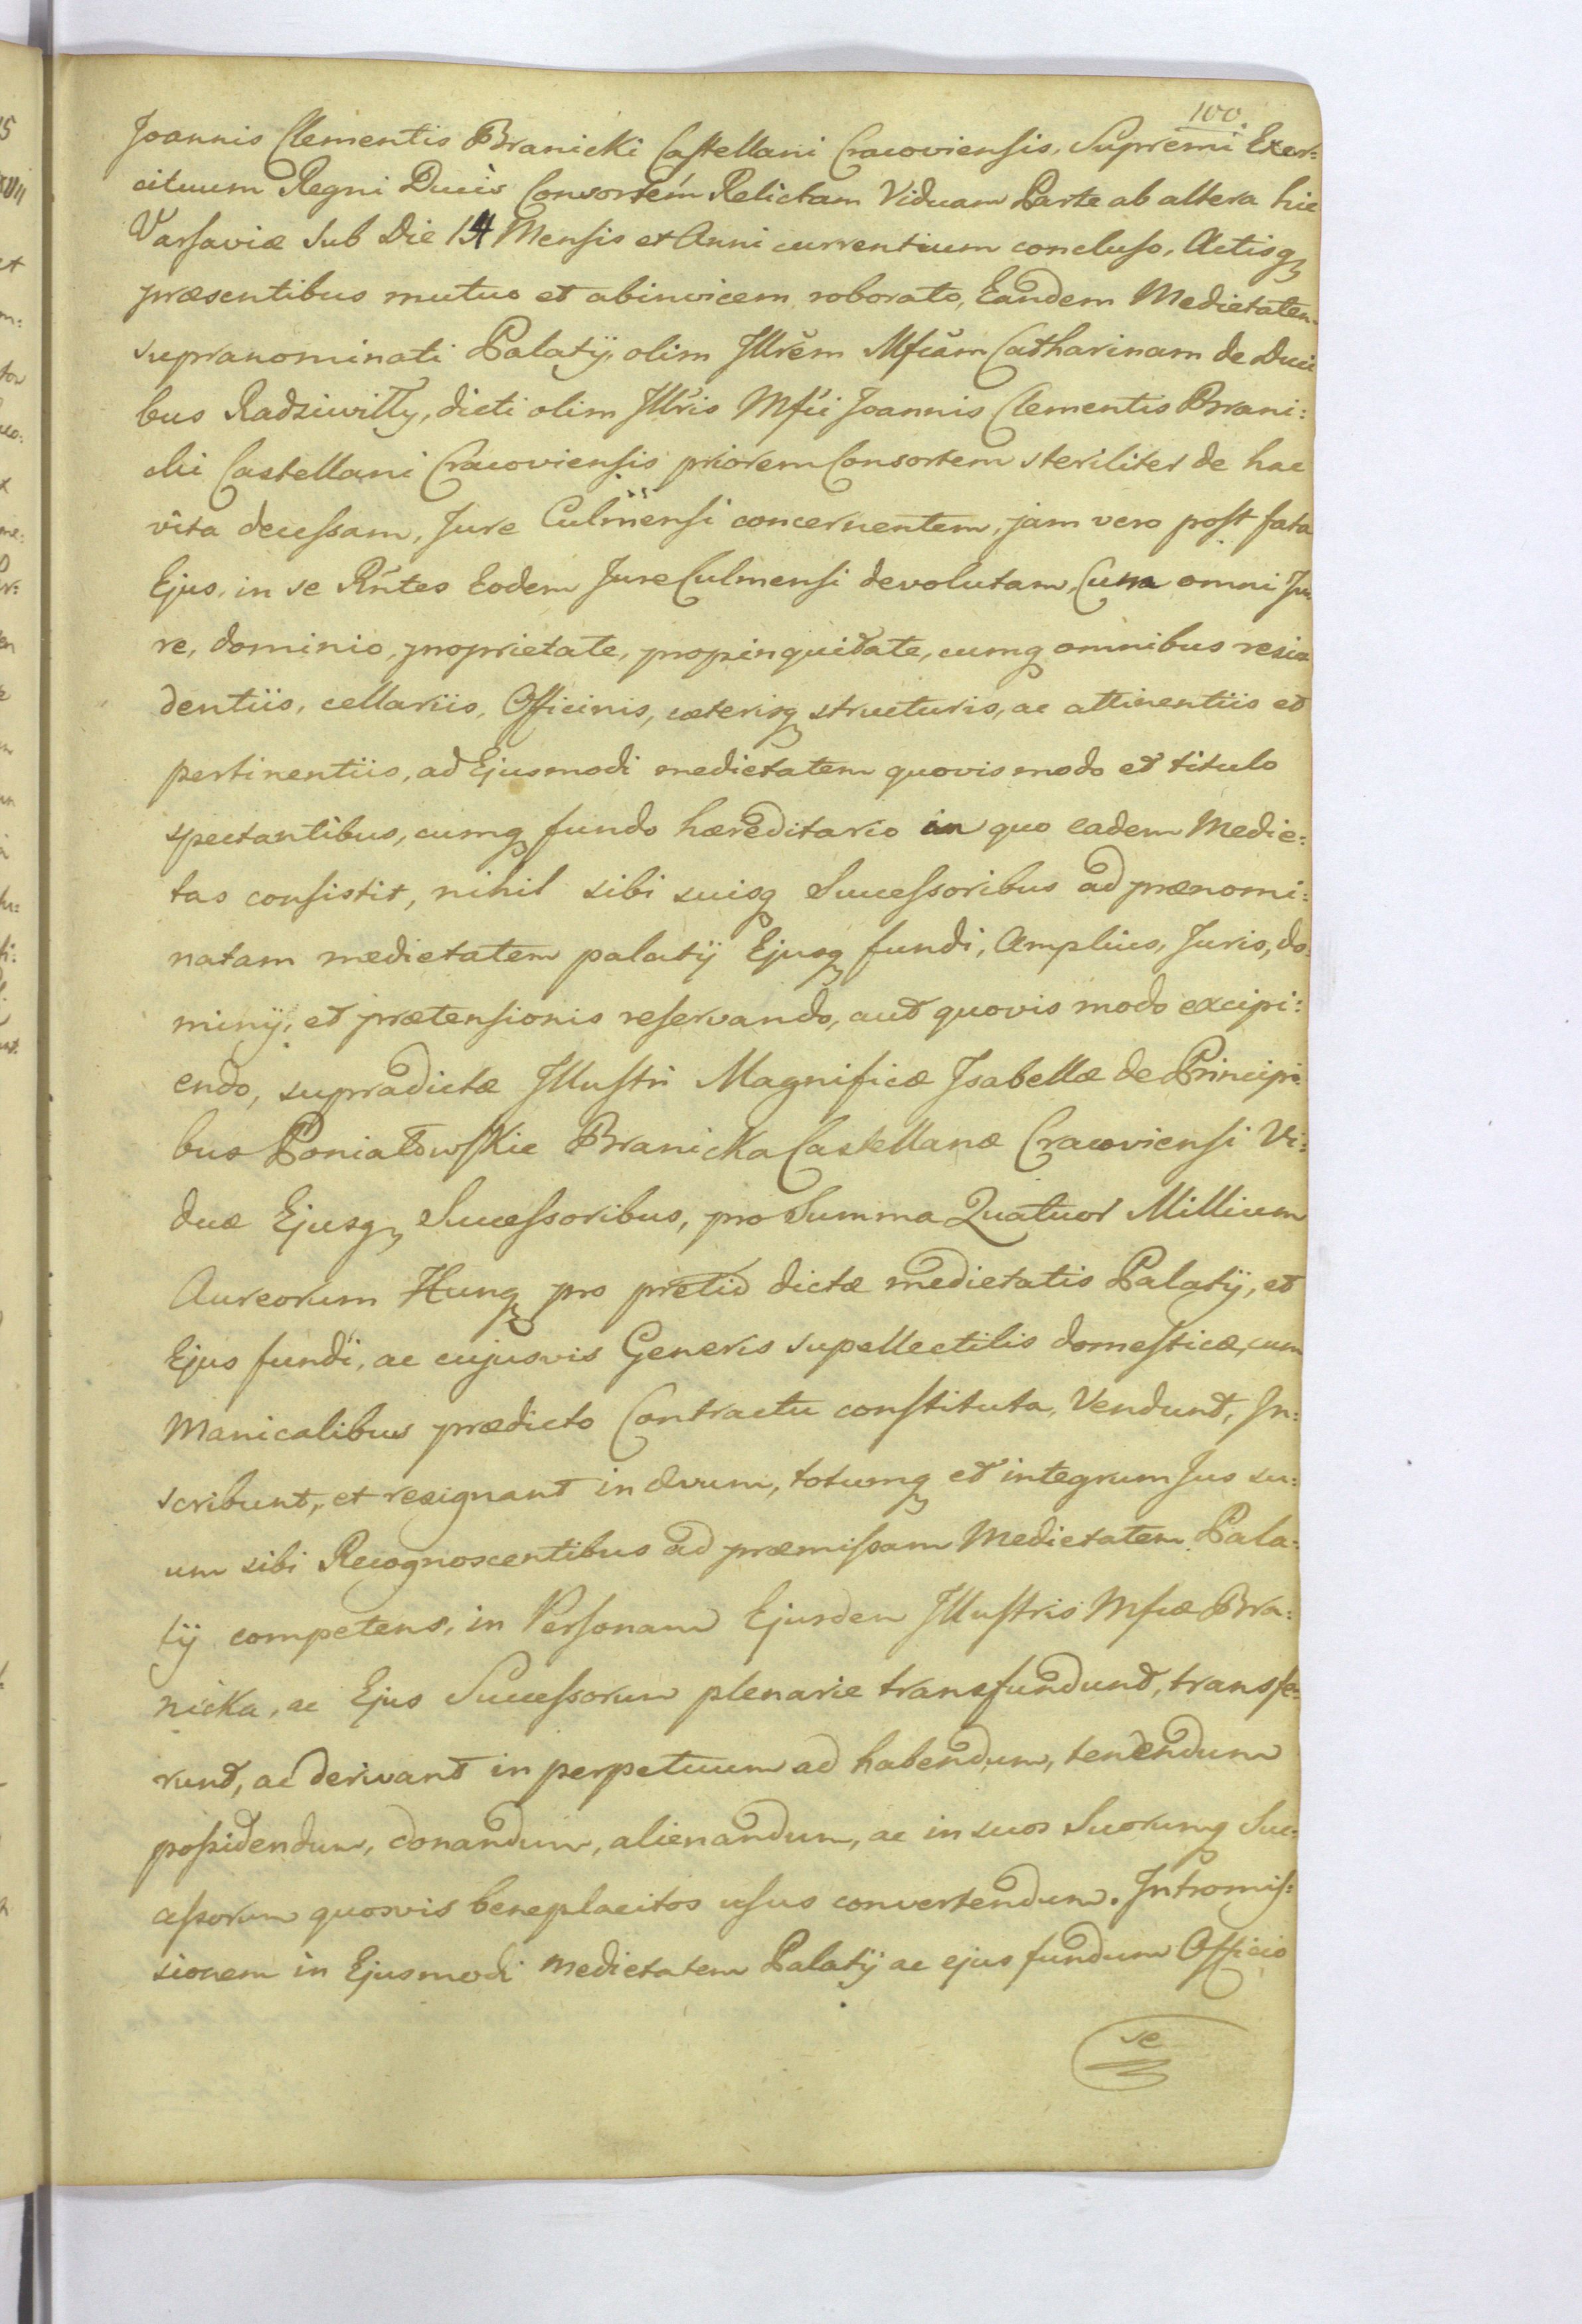 100.
Joannis Clementis Branicki Castellani Cracoviensis, Supremi Exer:
cituum Regni Ducis Consortem Relictam Viduam Parte ab altera hic
Varsaviæ Sub Die 14 Mensis et Anni currentium concluso, Actisq
præsentibus mutuo et abinvicem roborato, Eandem Medietatem
supranominati Palatij, olim Jllrem Mficam Catharinam de Duci
bus Radziwiłły, dicti olim Jllris Mfci Joannis Clementis Brani:
cki Castellani Cracoviensis priorem Consortem steriliter de hac
vita decessam, Jure Culmensi concernentem, jam vero post fata
Ejus, in se Rntes Eodem Jure Culmensi devolutam, Cum omni Ju
re, dominio, proprietate, propinquitate, cumq omnibus resi
dentiis, cellariis, Officinis, cæterisq structuris, ac attinentiis et
pertinentiis, ad Ejusmodi medietatem quovis modo et titulo
spectantibus, cumq fundo hæreditario in quo eadem Medie:
tas consistit, nihil sibi suisq Successoribus ad prænomi:
natam medietatem palatij Ejusq fundi, Amplius, Juris, do
minij, et prætensionis reservando, aut quovis modo excipi:
endo, supradictæ Jllustri Magnificæ Jsabellæ de Principi
bus Poniatowskie Branicka Castellanæ Cracoviensi Vi:
duæ Ejusq Successoribus, pro Summa Quatuor Millium
Aureorum Hung pro pretio dictæ medietatis Palatij, et
Ejus fundi, ac cujusvis Generis supellectilis domesticæ, cum
Manicalibus prædicto Contractu constituta, Vendunt, In:
scribunt, et resignant in ævum, totumq et integrum Jus su:
um sibi Recognoscentibus ad præmissam Medietatem Pala:
tij competens, in Personam Ejusdem Jllustris Mficæ Bra:
nicka, ac Ejus Successorum plenarie transfundunt, transfe:
runt, ac derivant in perpetuum ad habendum, tenendum
possidendum, donandum, alienandum, ac in suos Suorumq Suc:
cessorum quosvis beneplacitos usus convertendum. Intromis:
sionem in Ejusmodi medietatem Palatij ac ejus fundum Officio
se